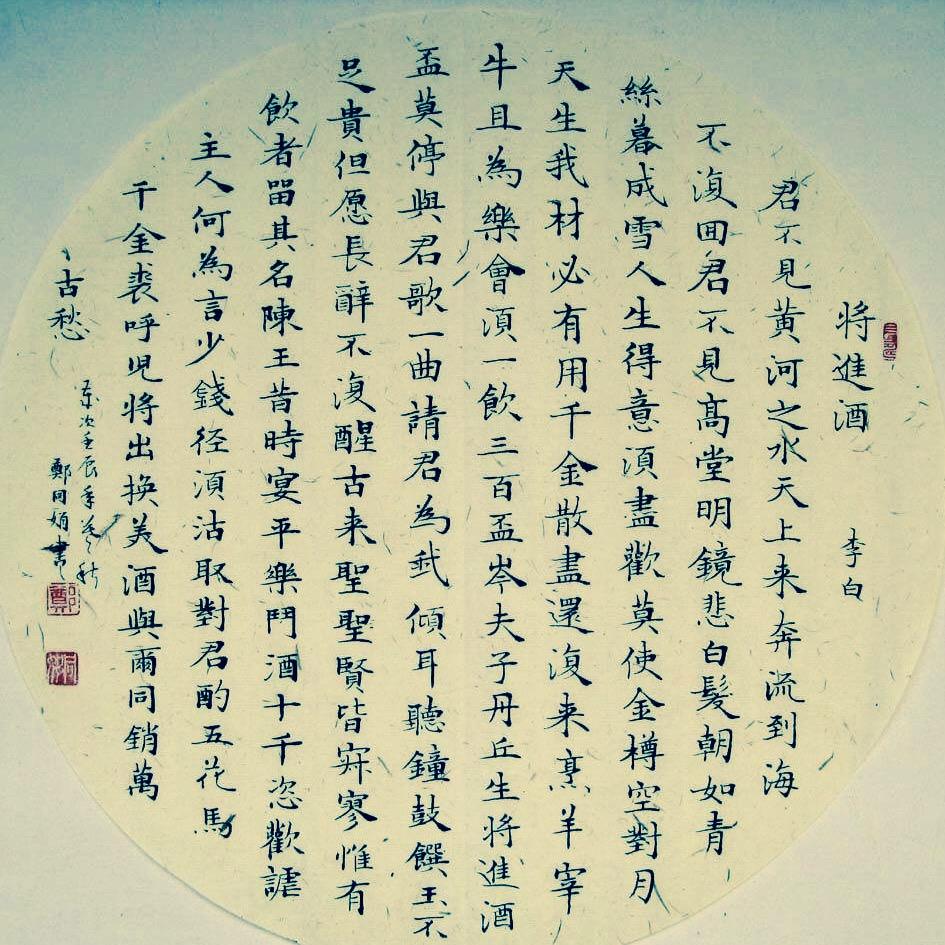 将進酒
李白
君不見黃河之水天上来奔流到海
不復囬君不見髙堂明鏡悲白髮朝如青
絲暮成雪人生得意須盡歡莫使金樽空對月
天生我材必有用千金散盡還復来烹羊宰
牛且為樂會須一飲三百盃岑夫子丹丘生将進酒
盃莫停與君歌一曲請君為我傾耳聽鐘鼓饌玉不
足貴但愿長辭不復醒古来聖聖賢皆寂寥惟有
飲者留其名陳王昔時宴平樂鬥酒十千恣歡謔
主人何為言少錢径須沽取對君酌五花馬
千金裘呼児将出换美酒與爾同銷萬
古愁
次壬辰年秋
鄭同娟書